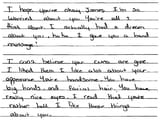 I hope you're okay James. I'm so
worried about you. You're all I
think about. I actually had a dream
about you, haha. I gave you a hand
massage.
I can't believe your cams are give
I liked them I like also about your
appearance. You're handsome. You have
big hands and hair. You have
really nice eyes. I read that you're
rather tall. I like these things
about you.